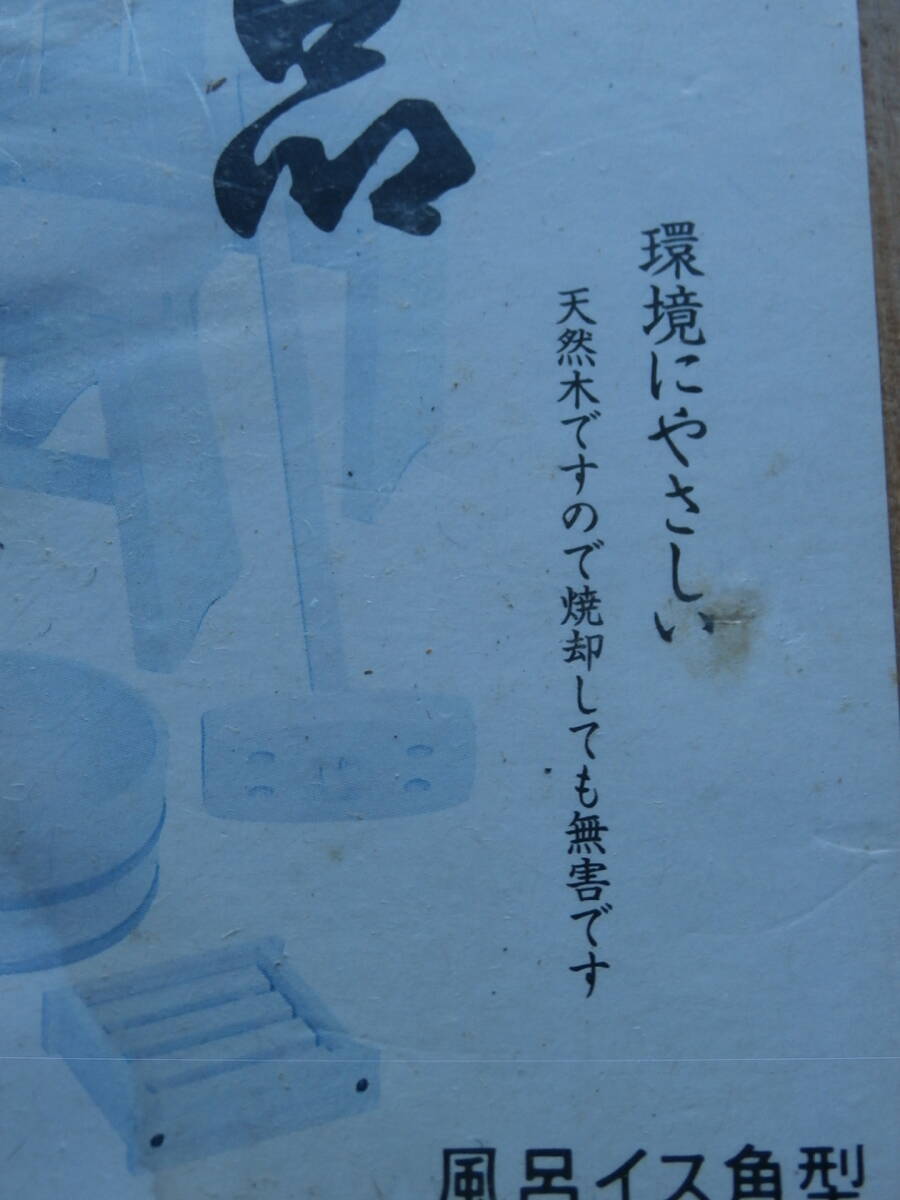 品
環境にやさしい
天然木ですので焼却しても無害です
風呂イス角型